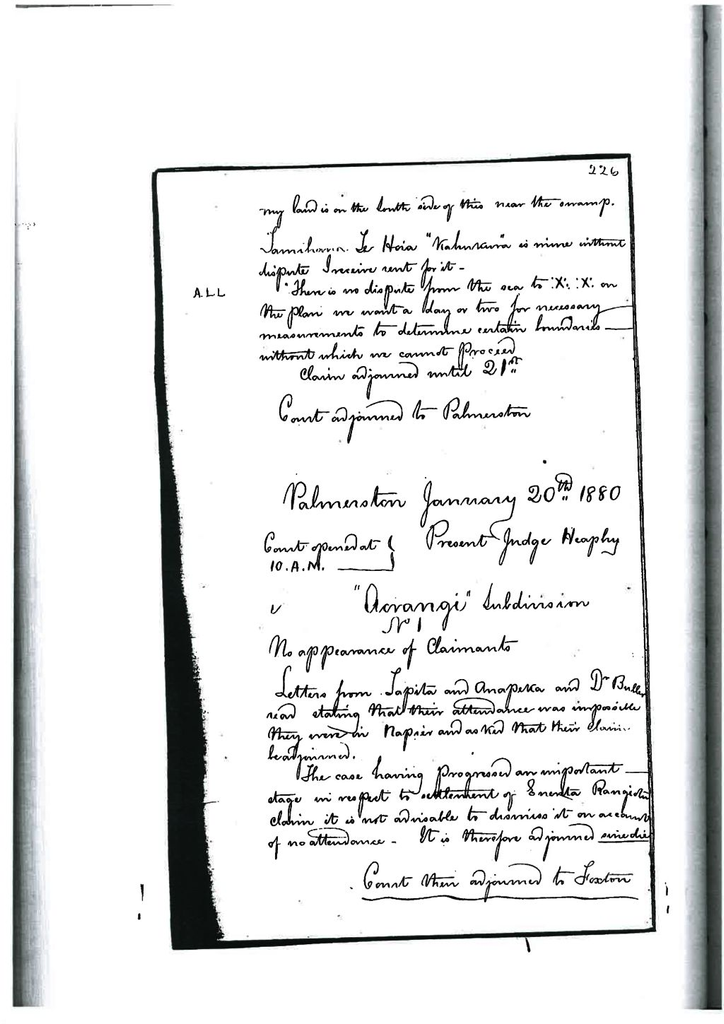 226
my land is on the South side of this near the swamp.
Tamihana Te Hoia "Kahukura" is mine without
dispute I receive rent for it -
A.L.L
"There is no dispute from the sea to ·X· ·X· on
the plan we want a day or two for necessary
measurements to determine certain boundaries
without which we cannot proceed
Claim adjourned until 21st
Court adjourned to Palmerston
Palmerston January 20th 1880
Court opened at Present Judge Heaphy
10. A.M.
"Aorangi" Subdivision
No 1
No appearance of Claimants
Letters from Tapita and Anapeka and Dr Buller
read stating that their attendance was impossible
they were in Napier and asked that their claim
be adjourned.
The case having progressed an important
stage in respect to settlement of Enereta
claim it is not advisable to dismiss it on account
of no attendance - It is therefore adjourned sine die
Court then adjourned to Foxton